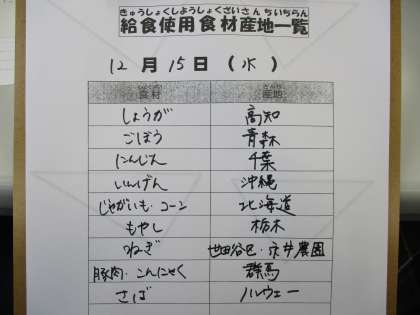 きゅうしょくしようしょくざいさんちいちらん
給食使用食材産地一覧
12月15日(水)
食材 産地
しょうが 高知
ごぼう 青森
にんじん 千葉
いんげん 沖縄
じゃがいも・コーン 北海道
もやし 栃木
ねぎ 世田谷区・宍井農園
豚肉・こんにゃく 群馬
さば ノルウェー